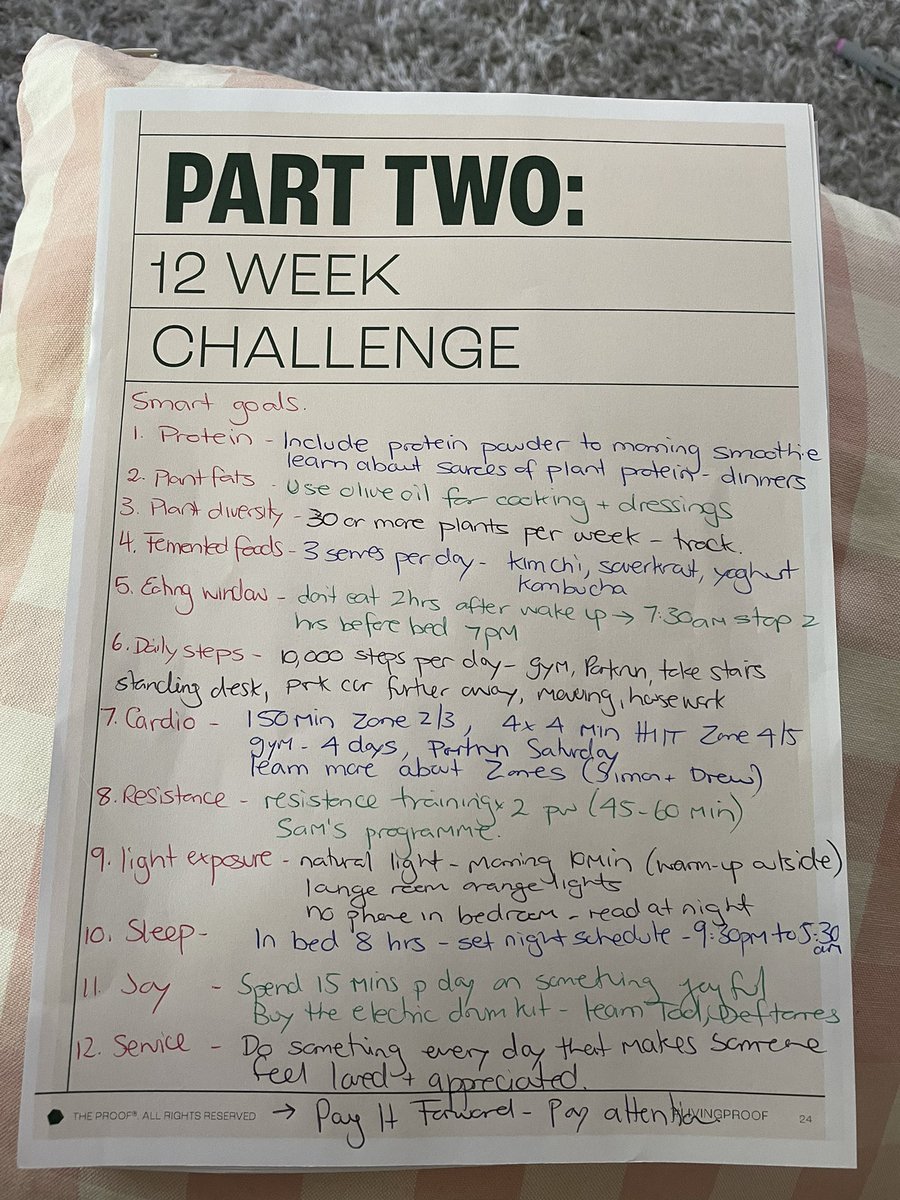 PART TWO:
12 WEEK
CHALLENGE
Smart goals.
1. Protein - Include protein powder to morning smoothie
learn about sources of plant protein - dinners
2. Plant fats - Use olive oil for cooking + dressings
3. Plant diversity - 30 or more plants per week - track.
4. Femented foods - 3 serves per day - kimchi, saverkraut, yoghurt
kombucha
5. Eating window - don't eat 2hrs after wake up → 7:30am stop 2
hrs before bed 7PM
6. Daily steps - 10,000 steps per day - gym, Parkrun, take stairs
standing desk, park car further away, moving, housework
7. Cardio - 150 Min Zone 2/3, 4x4 Min HIIT Zone 4/5
gym - 4 days, Parkrun Saturday
learn more about Zones (Simon + Drew)
8. Resistance - resistance training x 2 pw (45-60 min)
Sam's programme.
9. light exposure - natural light - morning 10min (warm-up outside)
lange room orange lights
no phone in bedroom - read at night
10. Sleep - In bed 8 hrs - set night schedule - 9:30pm to 5:30
am
11. Joy - Spend 15 mins p day on something joyful
Buy the electric drum kit - learn Tool, Deftones
12. Service - Do something every day that makes someone
feel loved + appreciated.
→ Pay It Forward - Pay attention
THE PROOF®. ALL RIGHTS RESERVED
#LIVINGPROOF
24